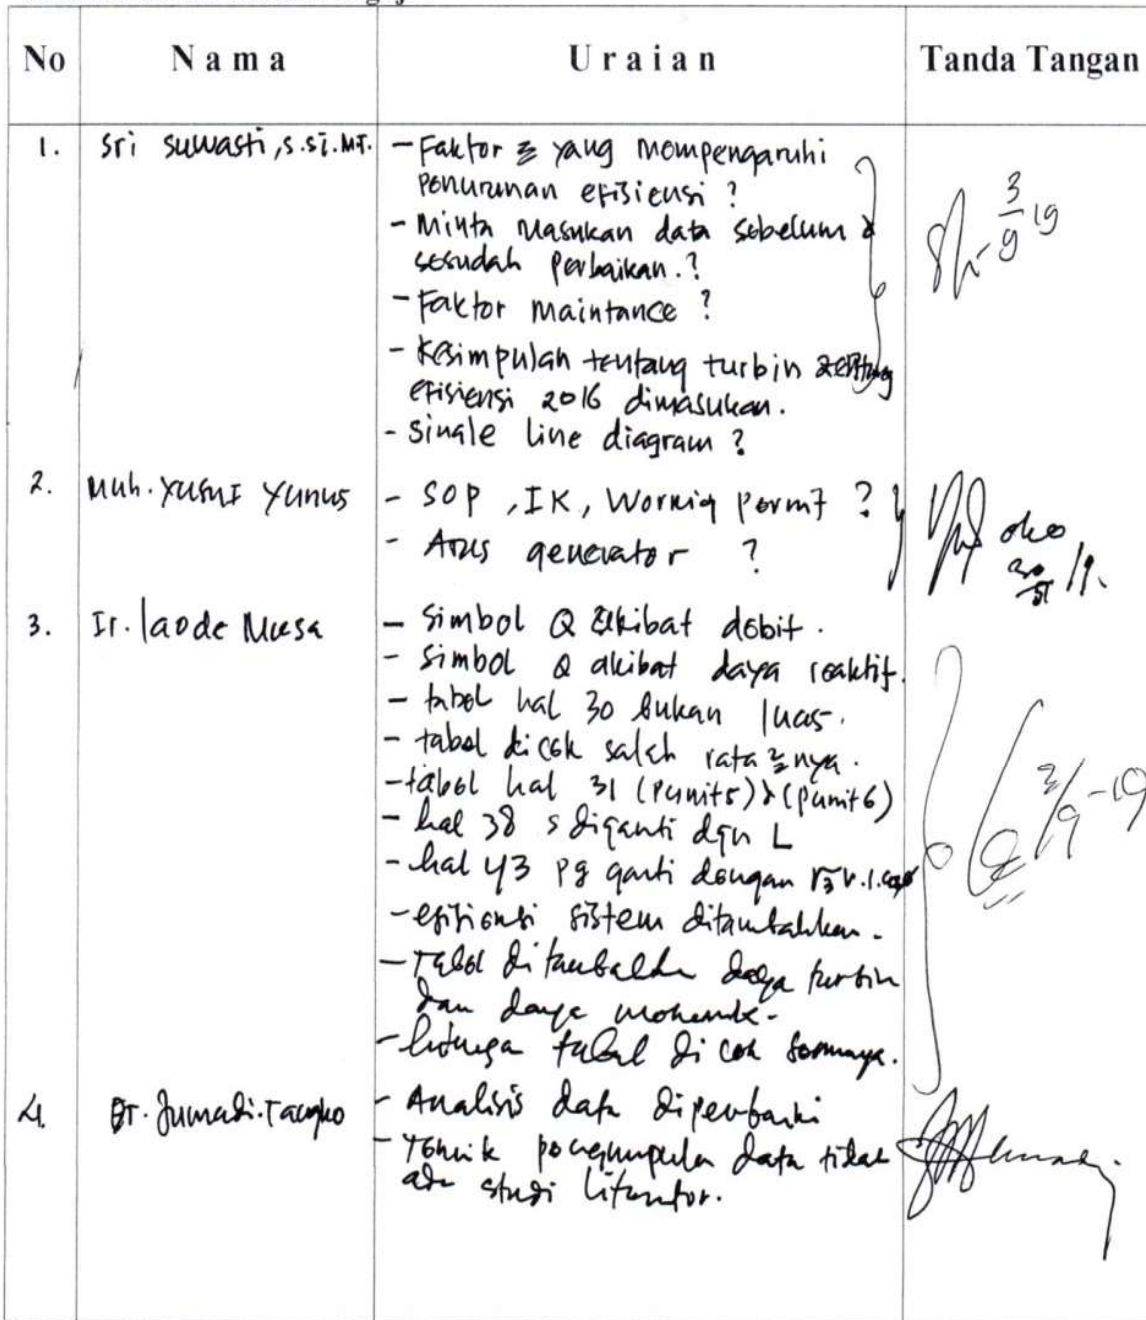 No Nama Uraian Tanda Tangan
1. Sri Suwasti, S.Si. MT. - Faktor 2 yang mempengaruhi
penurunan efisiensi ?
- Minta masukan data sebelum &
sesudah perbaikan. ?
- Faktor maintance ?
- Kesimpulan tentang turbin
efisiensi 2016 dimasukan.
- Single line diagram ?
3/9 19
2. Muh. Yusuf Yunus - SOP , IK, Working permit ?
- Arus generator ?
3. Ir. Laode Musa - Simbol Q akibat debit.
- Simbol Q akibat daya reaktif.
- tabel hal 30 bukan luas.
- tabel dicek salah rata 2 nya.
- tabel hal 31 (Punit5) & (Punit6)
- hal 38 s diganti dgn L
- hal 43 Pg ganti dengan √3 V.I.cos
- efisiensi sistem ditambahkan.
- Tabel ditambahkan daya turbin
dan daya mekanik.
- hitungan tabel di cek semuanya.
3/9-19
4. Jumadi Tangko - Analisis data diperbaiki
- Teknik pengumpulan data tidak
ada studi literatur.